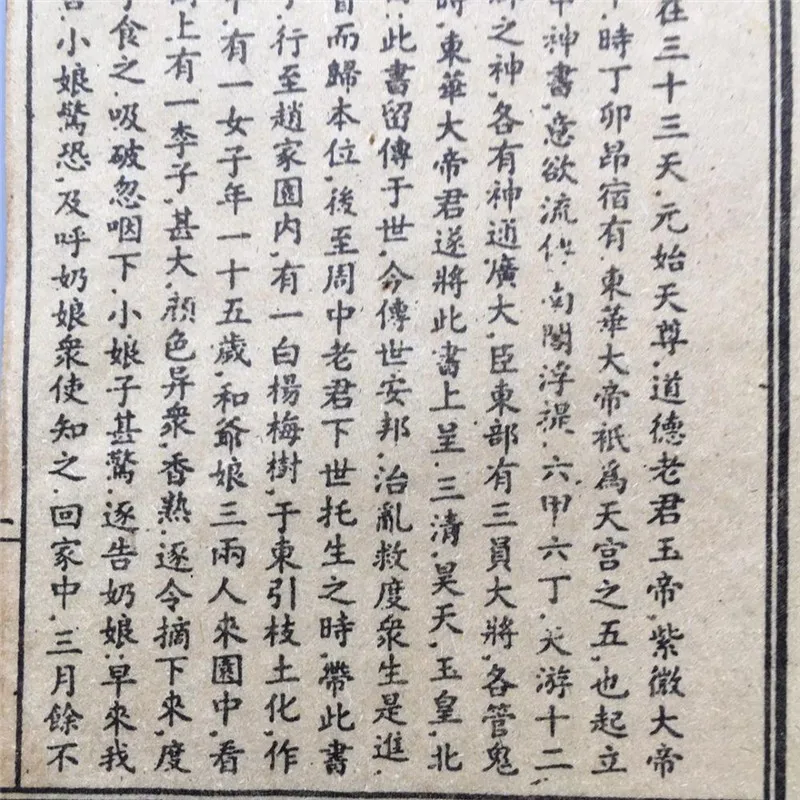 在三十三天．元始天尊．道德老君玉帝．紫微大帝
時丁卯昴宿有．東華大帝祇爲天宮之五．也起立
神書．意欲流 南閻浮提．六甲六丁．天游十二
之神．各有神通廣大．臣東部有三員大將．各管鬼
時．東華大帝君遂將此書上呈．三清．昊天．玉皇．北
此書留傳于世．今傳世安邦．治亂救度衆生是進．
而歸本位．後至周中老君下世托生之時．帶此書
行至趙家園内．有一白楊梅樹．于東引枝土化．作
有一女子年一十五歲．和爺娘三兩人來園中．看
上有一李子．甚大．顔色异衆．香熟．逐令摘下來．度
食之．吸破忽咽下．小娘子甚驚．逐告奶娘．早來我
小娘驚恐．及呼奶娘衆使知之．回家中．三月餘不
二